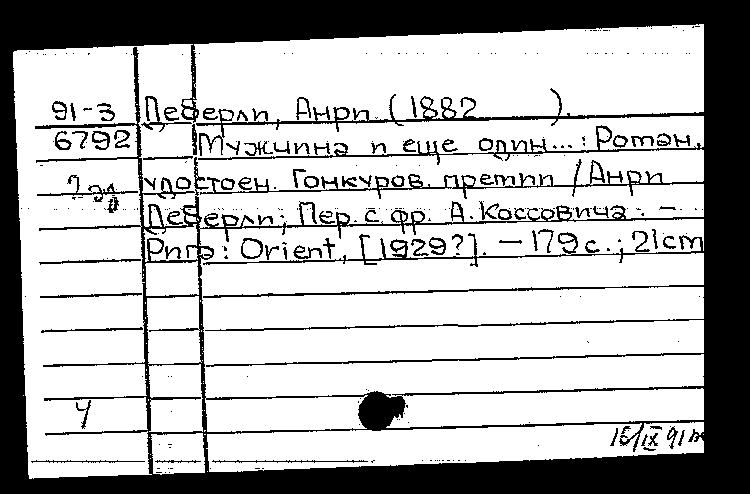 91-3 Деберли, Анри (1882 ).
6792 Мужчина и еще один... : Роман,
удостоен. Гонкуров. премии / Анри
Деберли; Пер. с фр. А. Коссовича. —
Рига: Orient, [1929?]. — 179 с.; 21 cm
4
15/IX 91